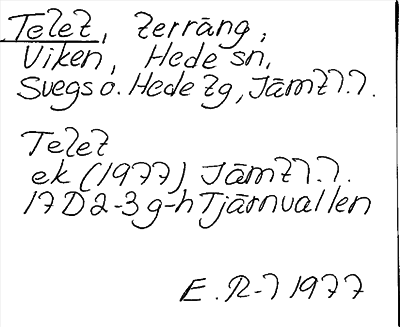 Telet, terräng;
Viken, Hede sn,
Svegs o. Hede tg, Jämtl.l.
Telet
ek (1977) Jämtl.l.
17D2-3g-h Tjärnvallen
E.R-l 1977